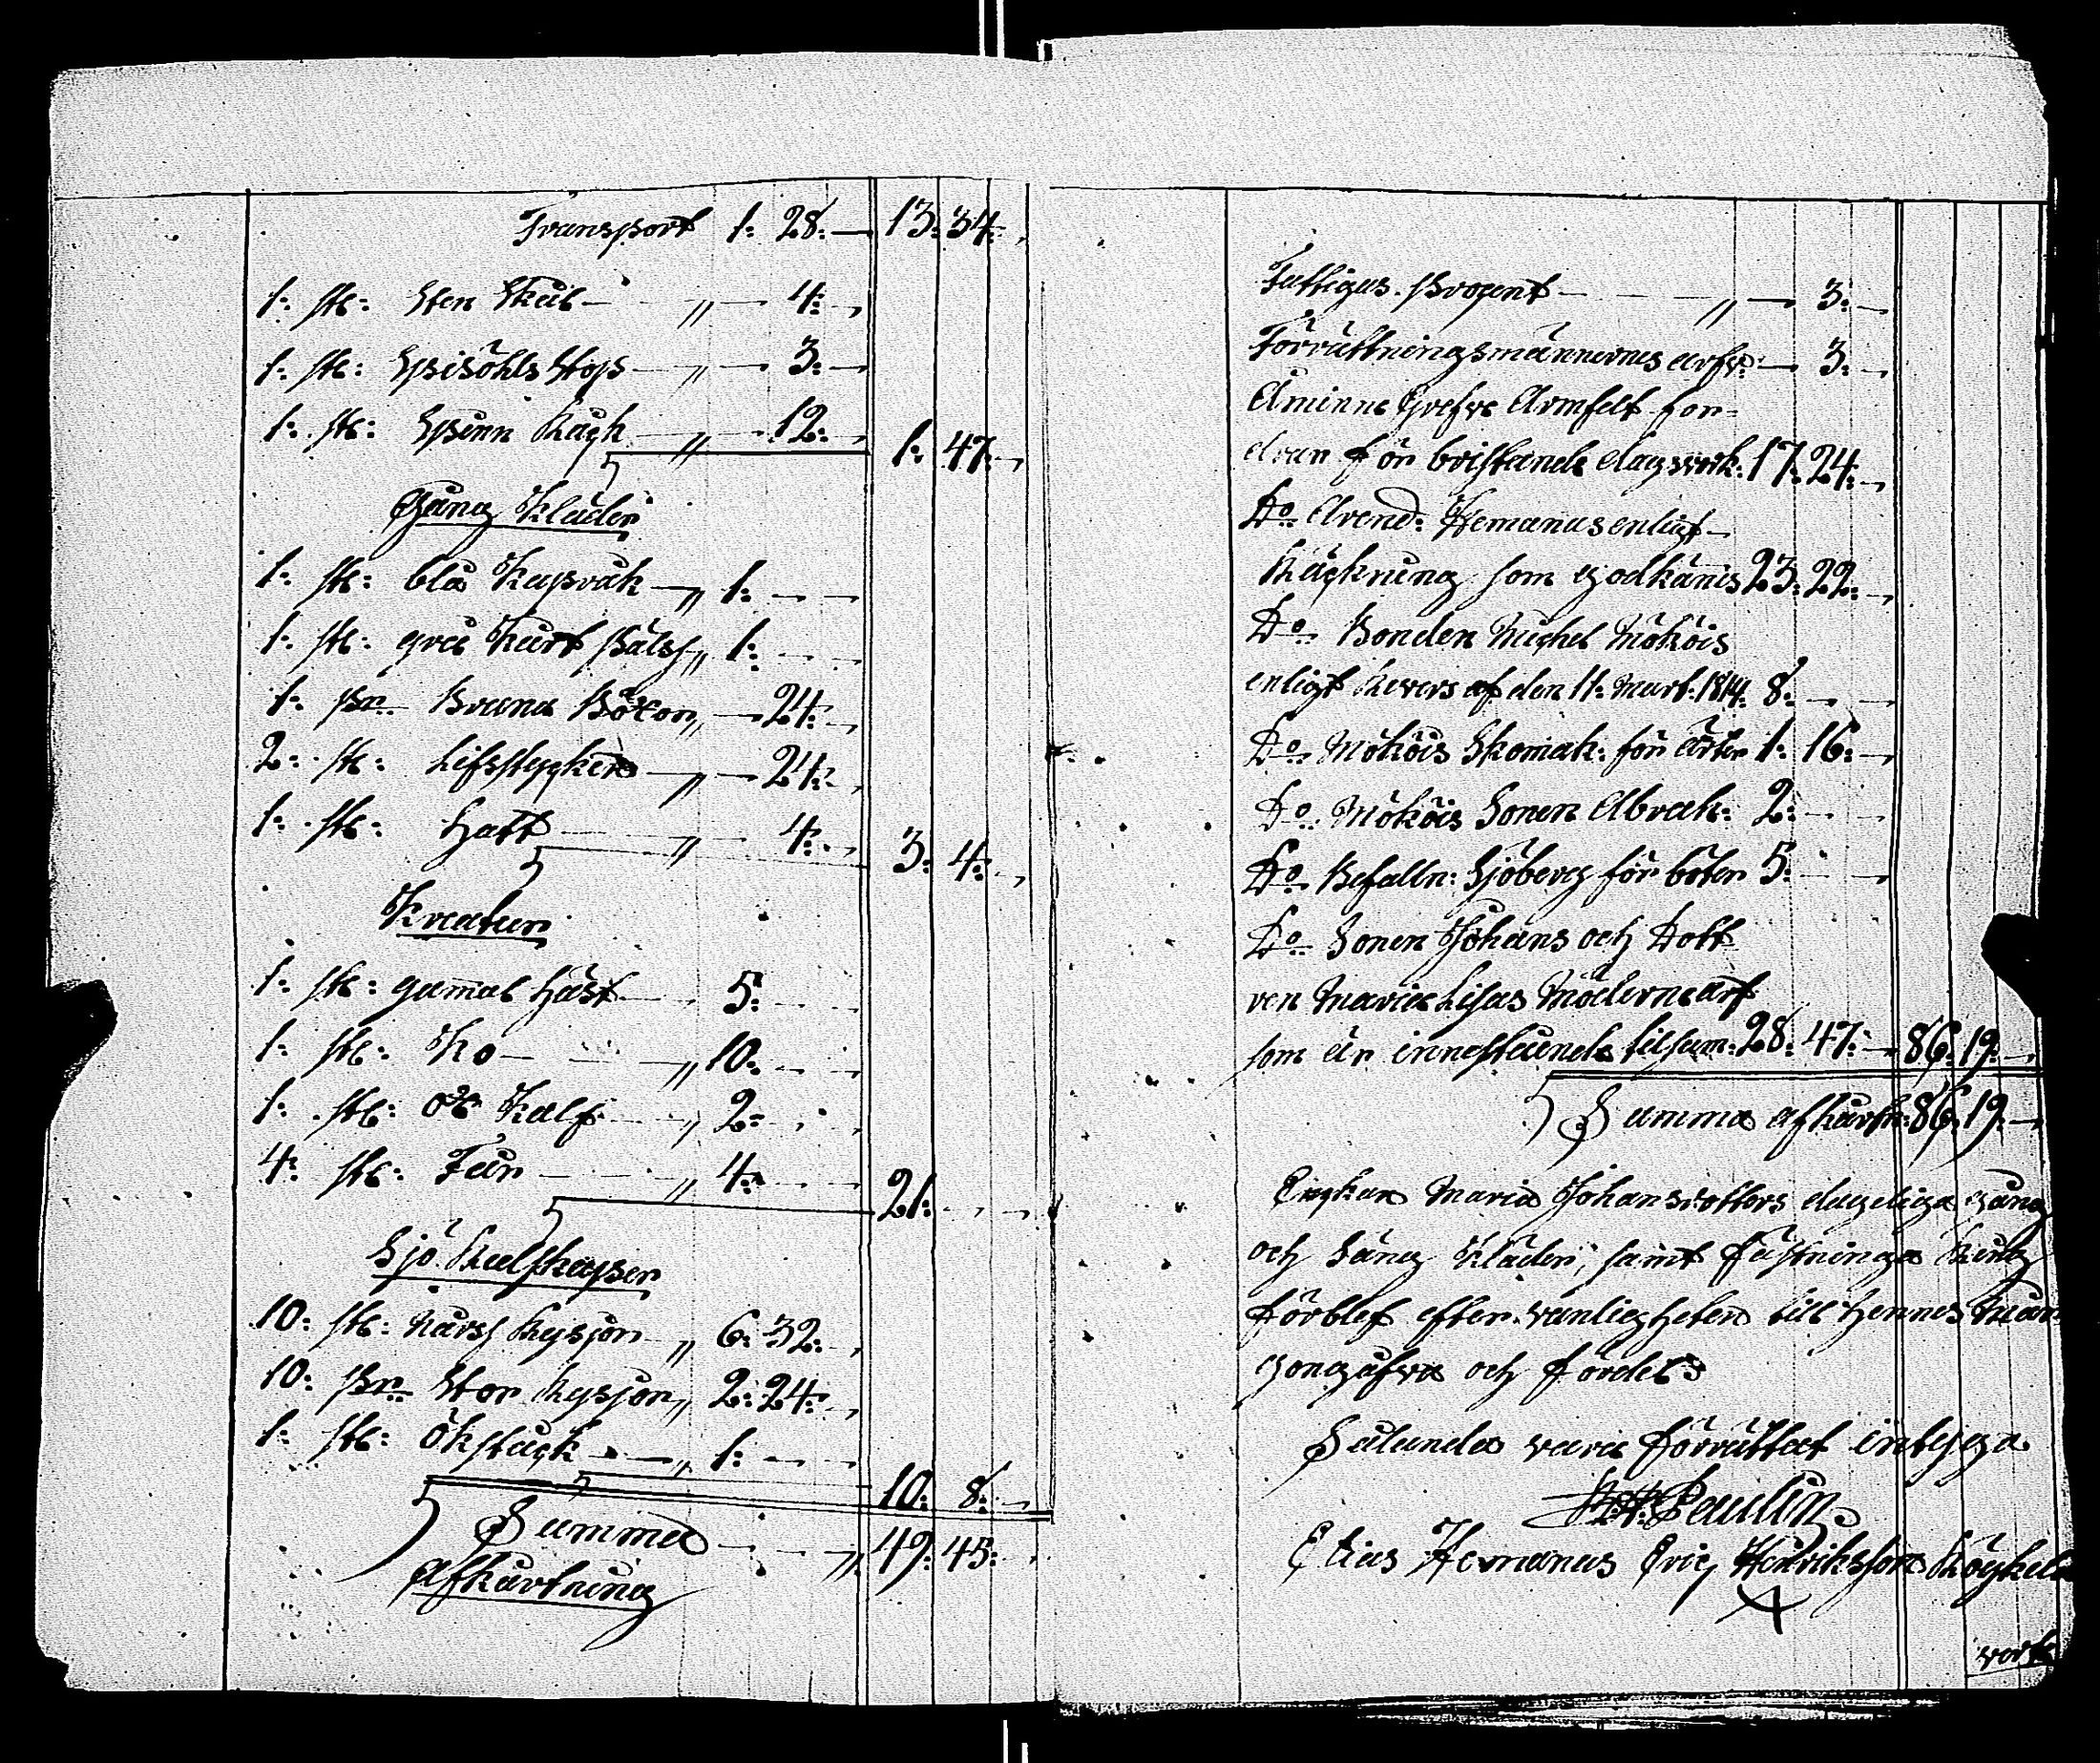 Transport 1: 28: — 13: 34:
1: st: Sten Skål — " — 4: —
1: st: Spisöhls Stop — " — 3: —
1: st: Spinn Råck — " — 12: —
1: 47: —
Gång Kläder
1: st: blå Kapråk — " 1: — —
1: st: grå Kart påls " 1: — —
1: Pr Bruna Böxor " — 24: —
2: st: Lifstycken — " — 24: —
1: st: Hatt — " — 4: —
3: 4: —
Kreatur
1: st: gamal häst — 5: — —
1: st: Ko — — " 10: — —
1: st: ox Kalf — " 2: — —
4: st: Får — — " 4: — —
21: — —
Sjö Redskaper
10: st: Närs Rysjor — " 6: 32: —
10: Pr Stor Rysjor " 2: 24: —
1: st: Ökstäck — — " 1: — —
10: 8: —
Summa — — " 49: 45: —
Afkartning
Fattigas procent — — " — 3: —
Förrättningsmännernes arfv: — 3: —
Åminne Grefve Armfelt for-
dran för bristande dagsverk: 17: 24: —
Do Arend: Hemanus enligt
Räckning som godkännis 23: 22: —
Do Bonden Michel Mököis
enligt Revers af den 11: Mart: 1814. 8: — —
Do Mököis Skomak: för ärter 1: 16: —
Do Mököis Sonen Abrah: 2: — —
Do Befalln: Sjöberg för böter 5: — —
Do Sonen Johans och Dott
ren Maria Lisas Möderne arf
som är innestående tilsam: 28: 47: — 86: 19: —
Summa afkortn: 86. 19. —
Enkan Maria Johansdotters dageliga gång
och Säng Kläder, samt fästninga Ring
förblef efter vanligheten till hennes Mor
gongåfva och fördel
Sålunda vara förrättat intyga
Paulin
Elias Hemanus Eric Henriksson
verte